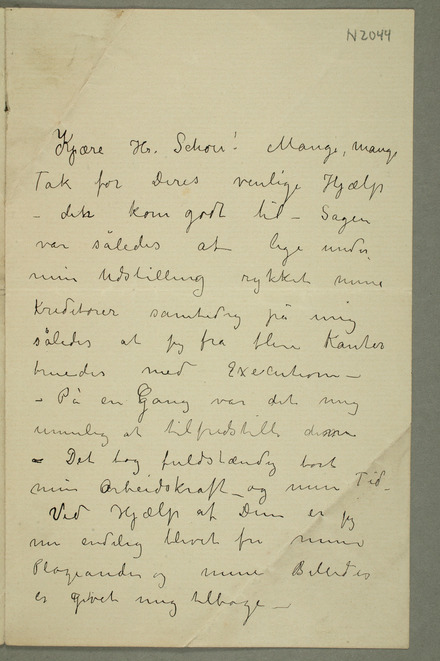 N 2044
Kjære Hr. Schou! Mange, mange
Tak for Deres venlige Hjælp
– det kom godt til – Sagen
var således at lige under
min Udstilling rykket mine
Kreditorer samtidig på mig
således at jeg fra flere Kanter
truedes med Execution –
– På en Gang var det mig
umulig at tilfredstille
– Det tog fuldstændig bort
min Arbeidskraft – og min Tid –
Ved Hjælp af Dem er jeg
nu endelig blevet fri mine
Plageånder og mine Billeder
er givet mig tilbage –